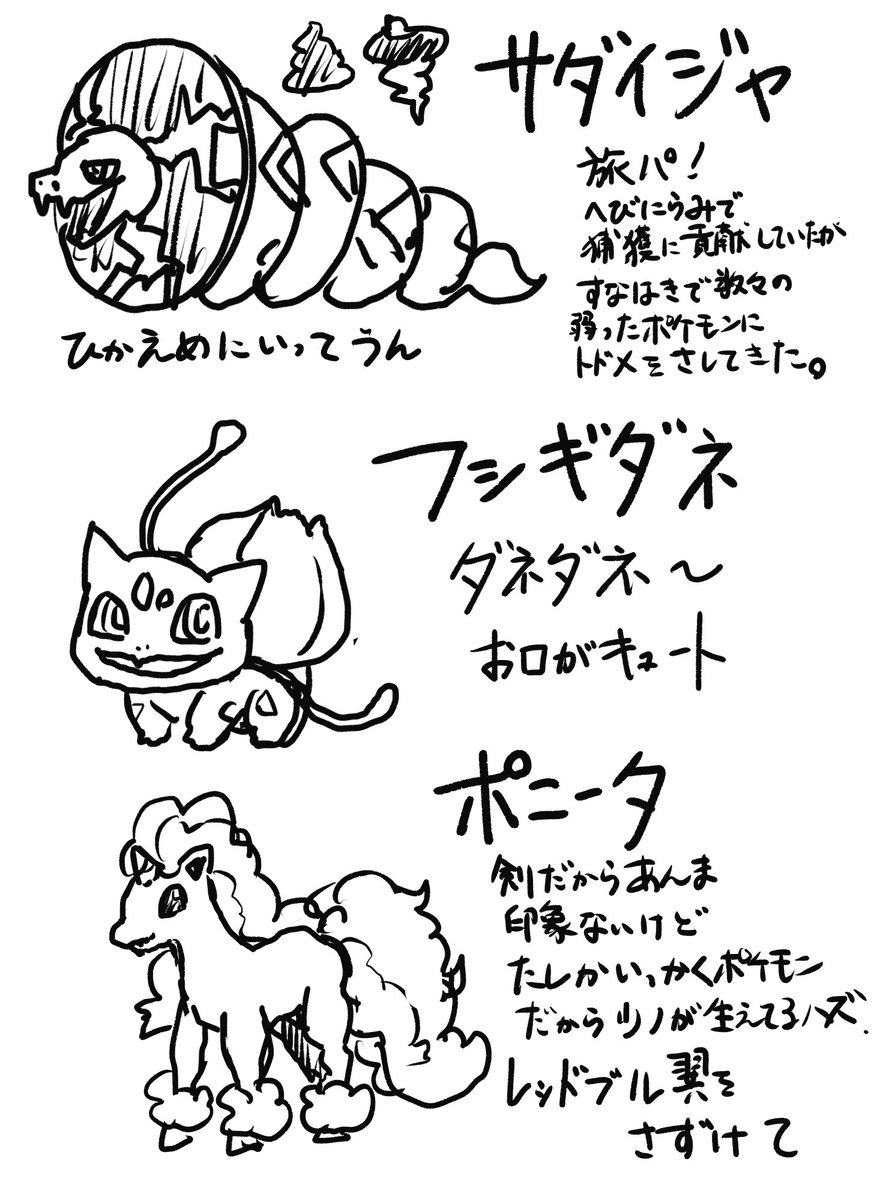 サダイジャ
旅パ!
へびにらみで
捕獲に貢献していたが
すなはきで数々の
弱ったポケモンに
トドメをさしてきた。
ひかえめにいってうん
フシギダネ
ダネダネ〜
お口がキュート
ポニータ
剣だからあんま
印象ないけど
たしかいっかくポケモン
だからツノが生えてるハズ.
レッドブル翼を
さずけて